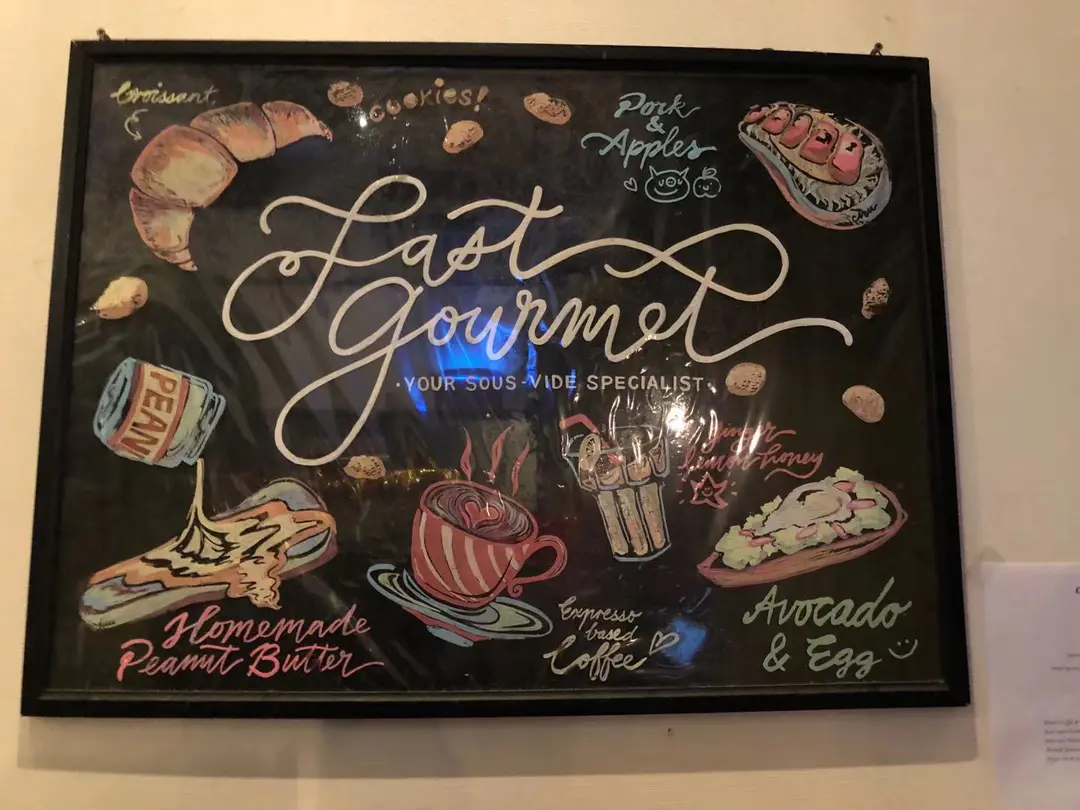 Croissant
cookies!
Pork
&
Apples
Fast
Gourmet
·YOUR SOUS-VIDE SPECIALIST·
PEAN
ginger
lemon honey
Homemade
Peanut Butter
Expresso
based
Coffee
Avocado
& Egg